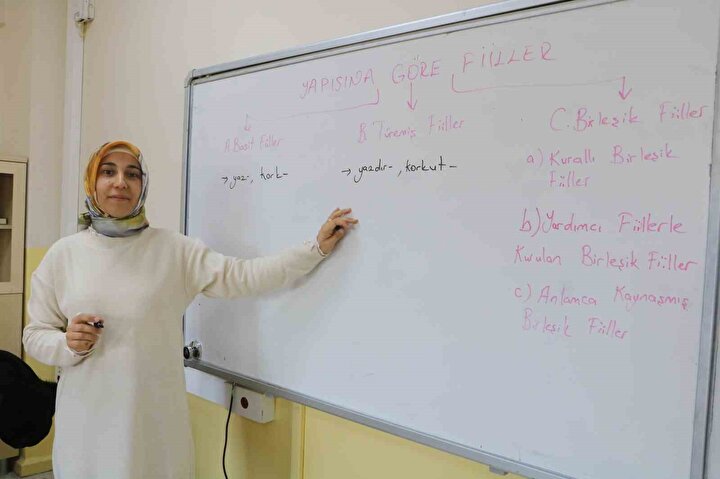 YAPISINA GÖRE FİİLLER
A. Basit Fiiller
→ yaz-, kork-
B. Türemiş Fiiller
→ yazdır-, korkut-
C. Birleşik Fiiller
a) Kurallı Birleşik
Fiiller
b) Yardımcı Fiillerle
Kurulan Birleşik Fiiller
c) Anlamca Kaynaşmış
Birleşik Fiiller